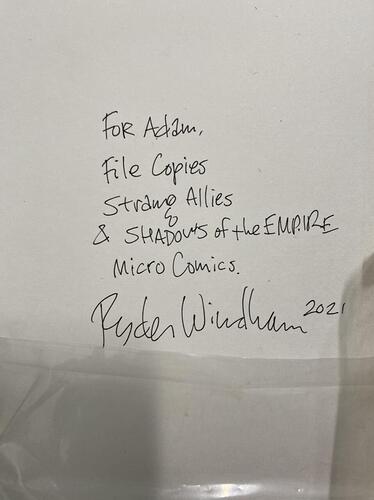 For Adam,
File Copies
Strang Allies
& SHADOWS of the EMPIRE
Micro Comics.
Ryder Windham 2021